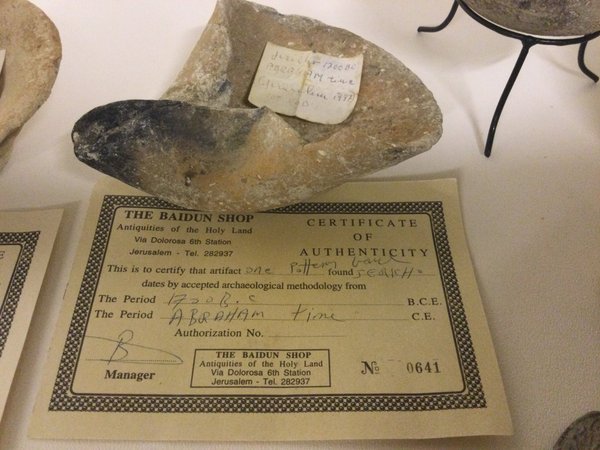 1700 BC
ABRAHAM time
Jerusalem
THE BAIDUN SHOP
Antiquities of the Holy Land
Via Dolorosa 6th Station
Jerusalem - Tel. 282937
CERTIFICATE
OF
AUTHENTICITY
This is to certify that artifact one Pottery found
dates by accepted archaeological methodology from
The Period 1700 B.C B.C.E.
The Period ABRAHAM time C.E.
Authorization No.
Manager
THE BAIDUN SHOP
Antiquities of the Holy Land
Via Dolorosa 6th Station
Jerusalem - Tel. 282937
No 0641